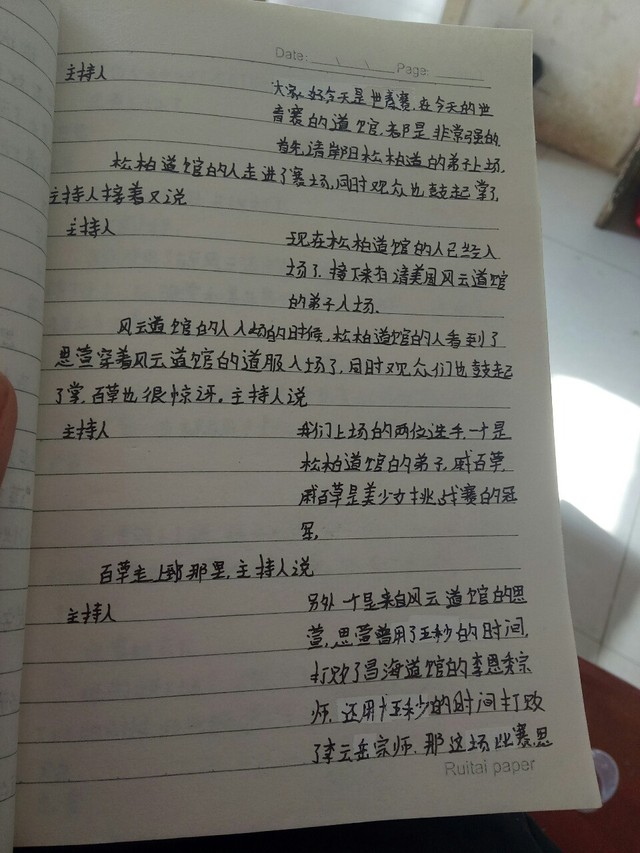 Date: \ \ Page:
主持人
大家好今天是世青赛,在今天的世
青赛的道馆,都是非常强的,
首先请岸阳松柏道的弟子上场,
松柏道馆的人走进了赛场,同时观众也鼓起掌了,
主持人接着又说
主持人 现在松柏道馆的人已经入
场了,接下来有请美国风云道馆
的弟子入场.
风云道馆的人入场的时候,松柏道馆的人看到了
思萱穿着风云道馆的道服入场了,同时观众们也鼓起
了掌,百草也很惊讶,主持人说
主持人 我们上场的两位选手,一个是
松柏道馆的弟子,戚百草,
戚百草是美少女挑战赛的冠
军,
百草走上到那里,主持人说
主持人 另外一个是来自风云道馆的思
萱,思萱曾用了五秒的时间,
打败了昌海道馆的李恩秀宗
师,还用十五秒的时间打败
了李云岳宗师,那这场比赛,思
Ruitai paper